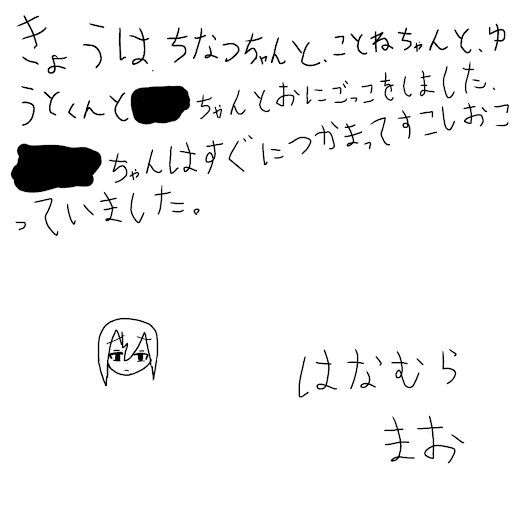 きょうはちなつちゃんと、ことねちゃんと、ゆ
うとくんと ちゃんとおにごっこをしました、
ちゃんはすぐにつかまってすこしおこ
っていました。
はなむら
まお